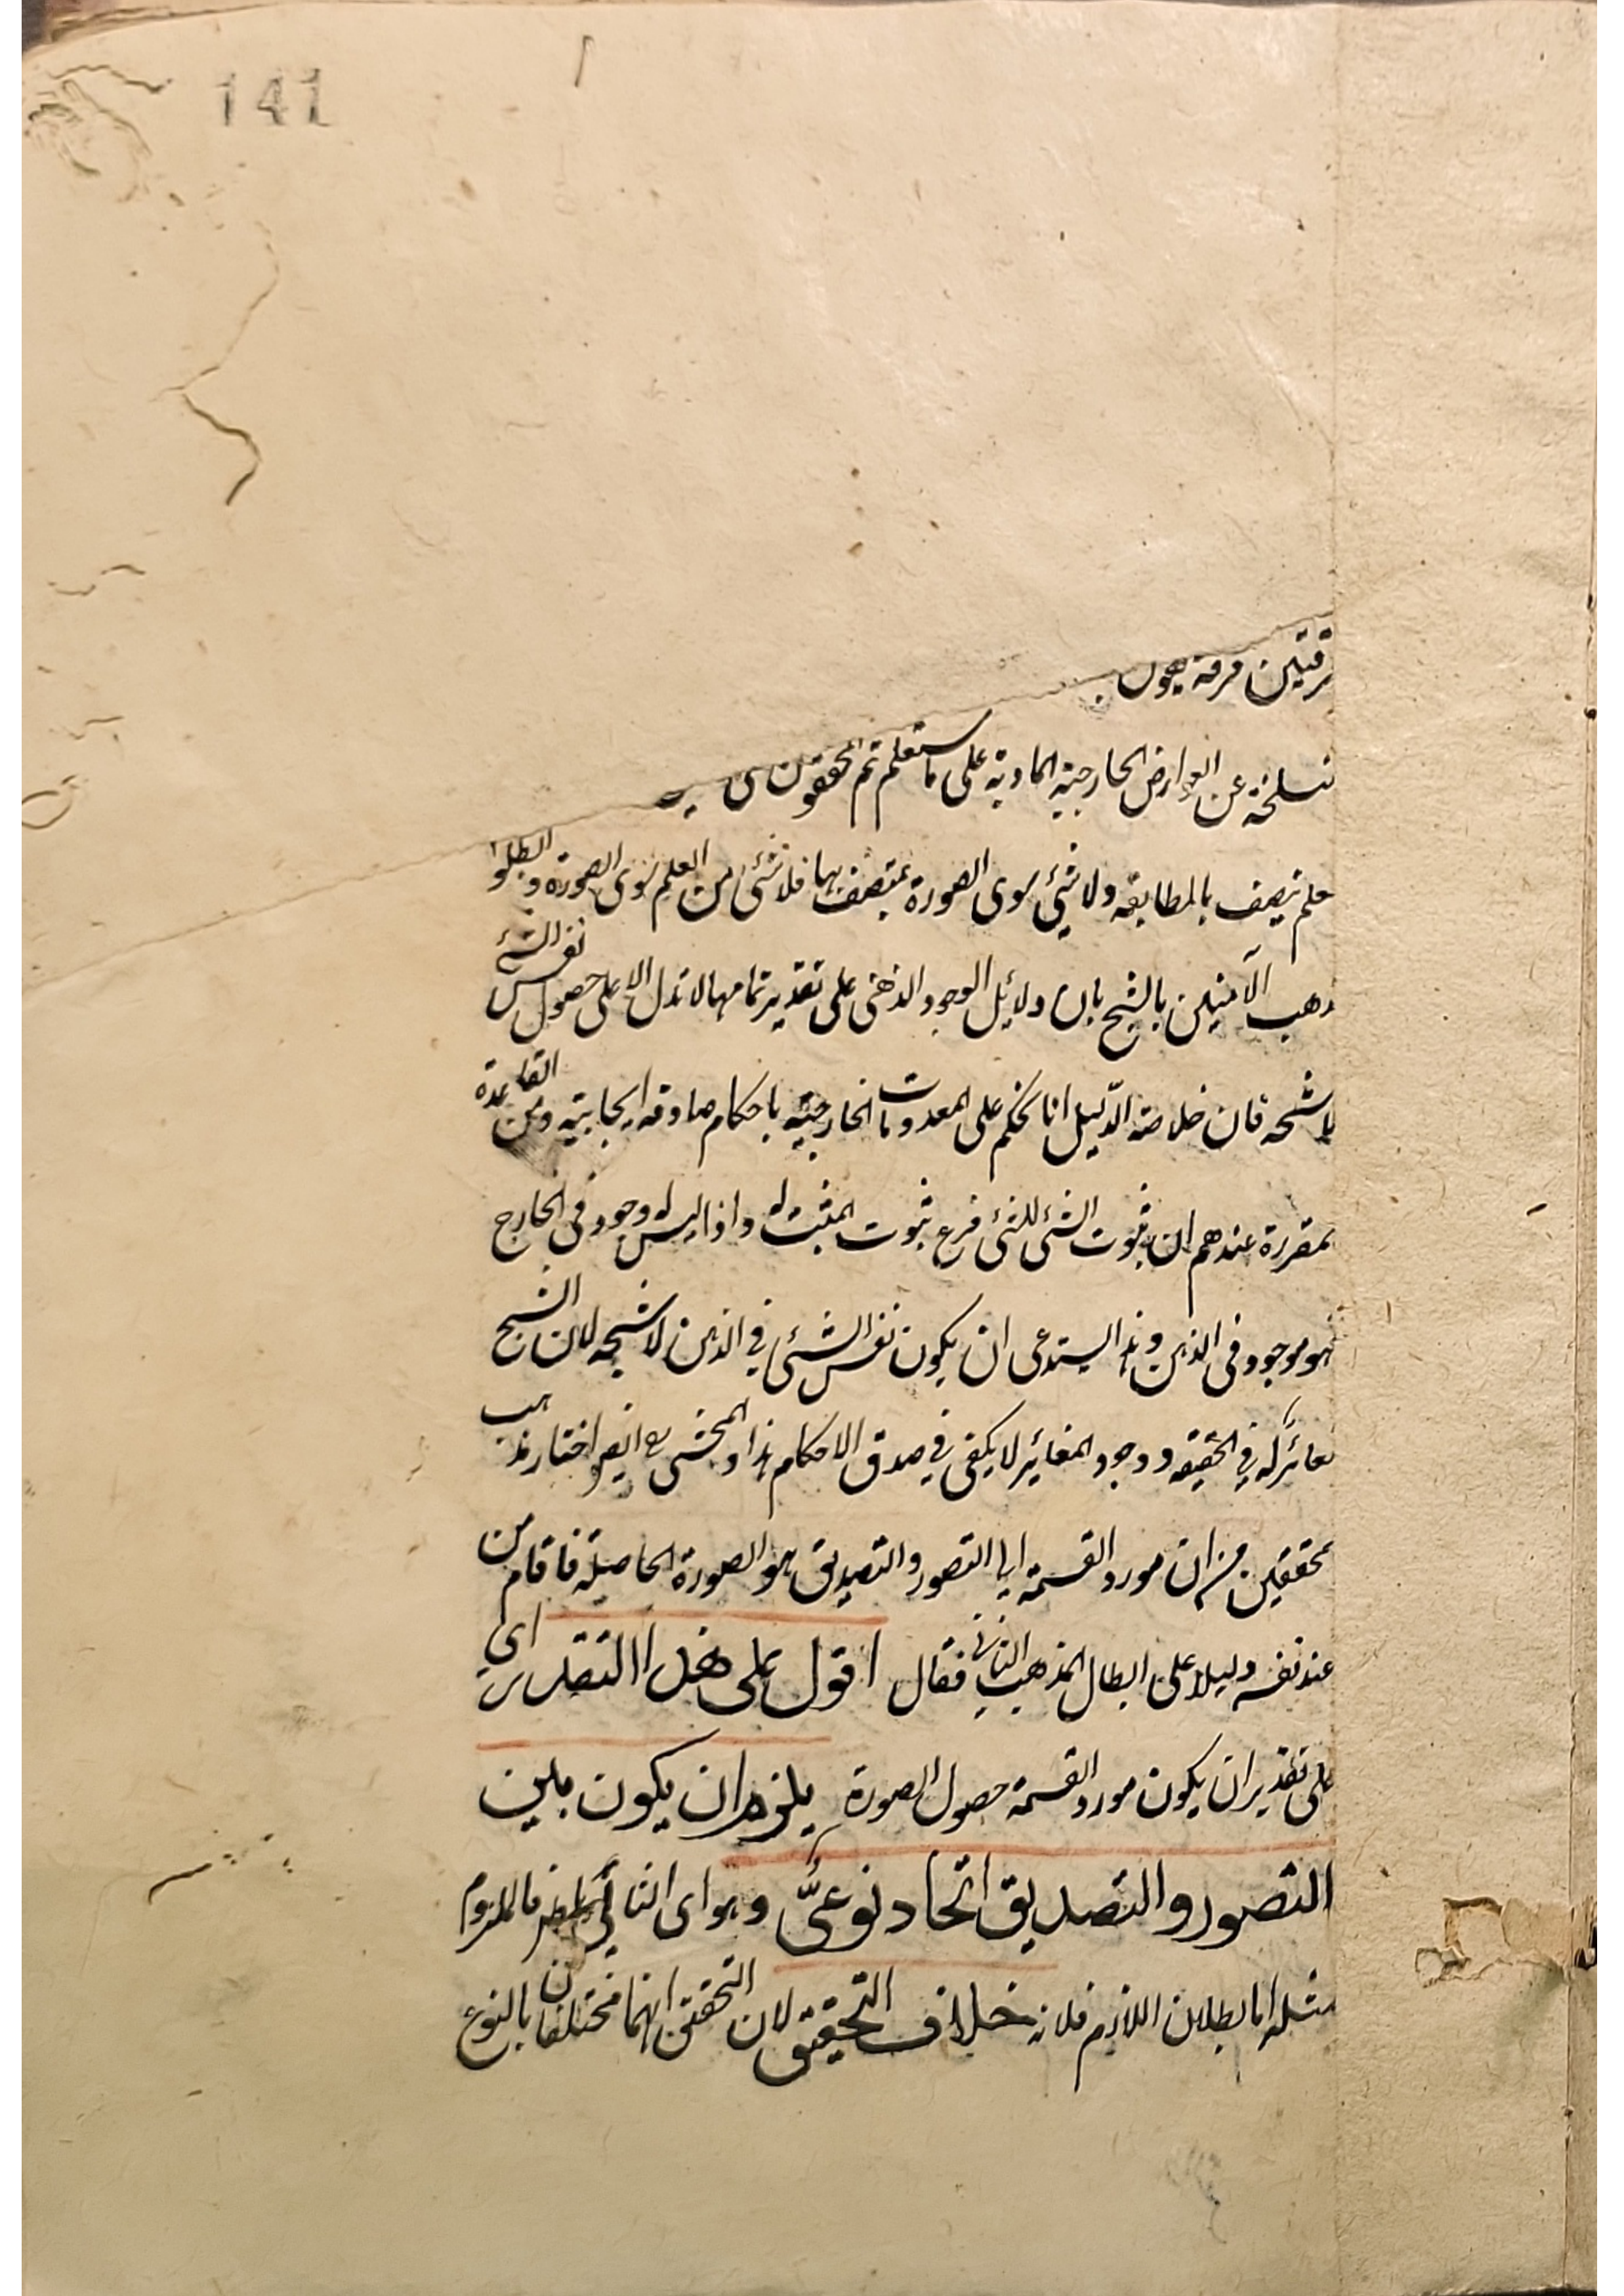 141
فرقتين فرقة يقول
نسلخة عن العوارض الخارجية المادية على ما ستعلم ثم المحققون
علم يتصف بالمطابقة ولا شيئ سوى الصورة بمتصف بها فلا شئ من العلم سوى الصورة وابطلوا
ذهب الآمنين بالشبح بان دلائل الوجود الذهنى على تقدير تمامها لا تدل الا على حصول نفس الشئ
لا شبحه فان خلاصة الدّليل انا نحكم على المعدومات الخارجية باحكام صادقة ايجابية ومن القاعدة
لمقررة عندهم ان ثبوت الشئ للشئ فرع ثبوت المثبت له واذا ليس له وجود فى الخارج
فهو موجود فى الذهن وهذا يستدعى ان يكون نفس الشئ في الذهن لا شبحه لان الشبح
مغائر له في الحقيقة ووجود المغائر لا يكفى في صدق الاحكام هذا والمحشى ايضا اختار مذهب
محققين من ان مورد القسمة الى التصور والتصديق هو الصورة الحاصلة فاقام من
عند نفسه دليلا على ابطال المذهب الثانى فقال اقول على هذا التقدير اى
على تقدير ان يكون مورد القسمة حصول الصورة يلزم ان يكون بين
التصور والتصديق اتحاد نوعىٌّ وهو اى التالى باطل فالملزوم
مثله اما بطلان اللازم فلانه خلاف التحقيق لان التحقيق انهما مختلفان بالنوع